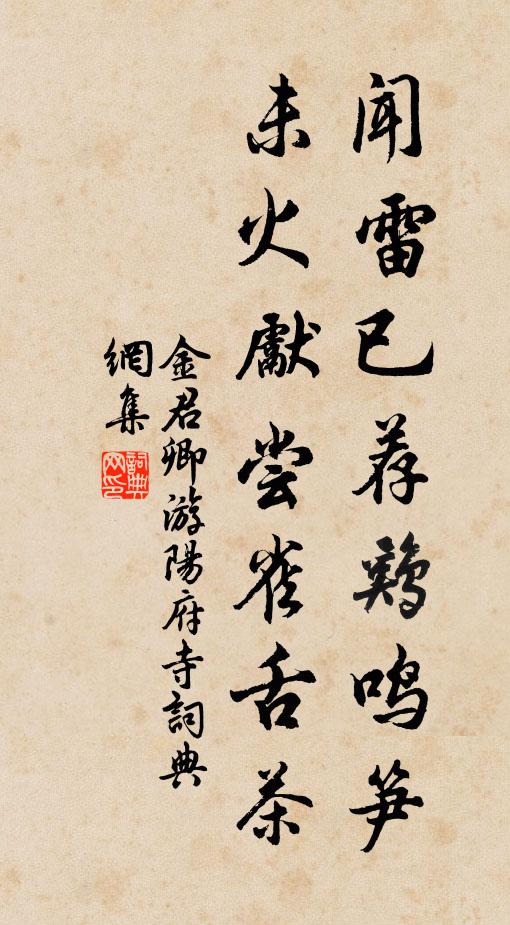 闻雷已荐鸡鸣笋
未火献尝雀舌茶
金君卿游陽府寺詞典
網集
詞典网印